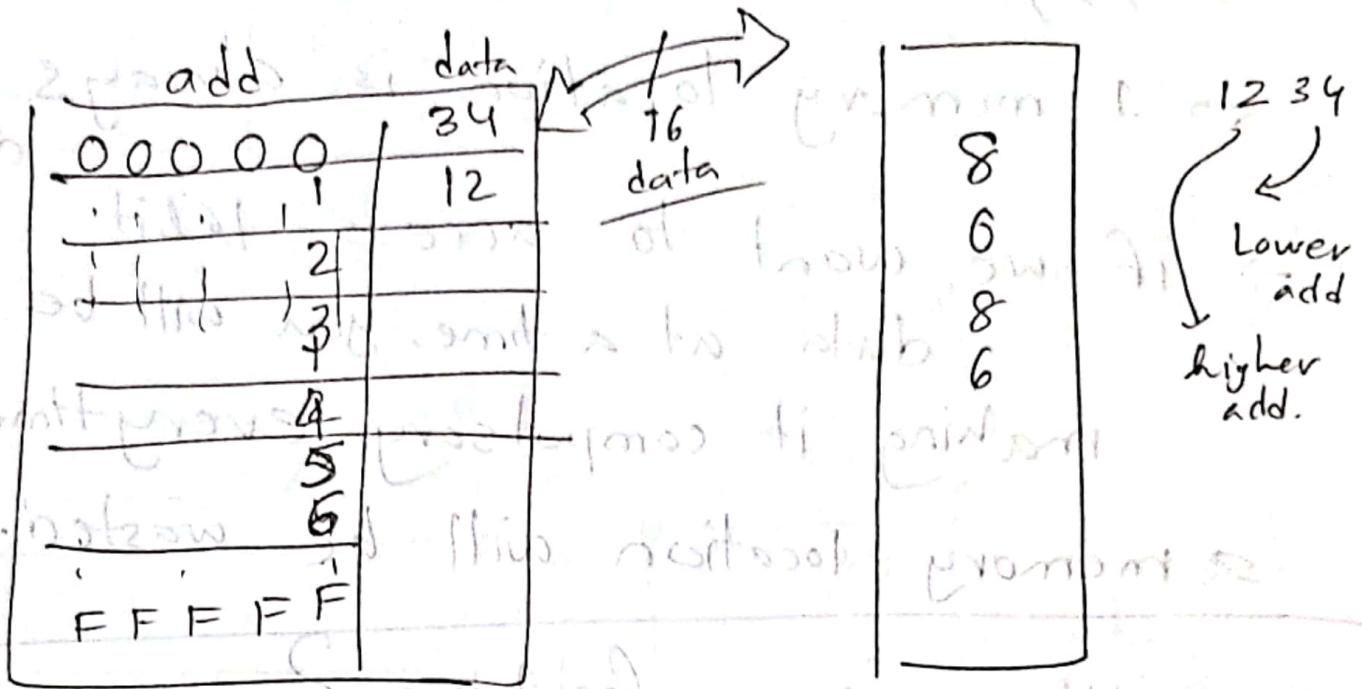 add data
00000 34
1 12
2
3
4
5
6
FFFFF
16
data
8
0
8
6
12 34
Lower
add
higher
add.